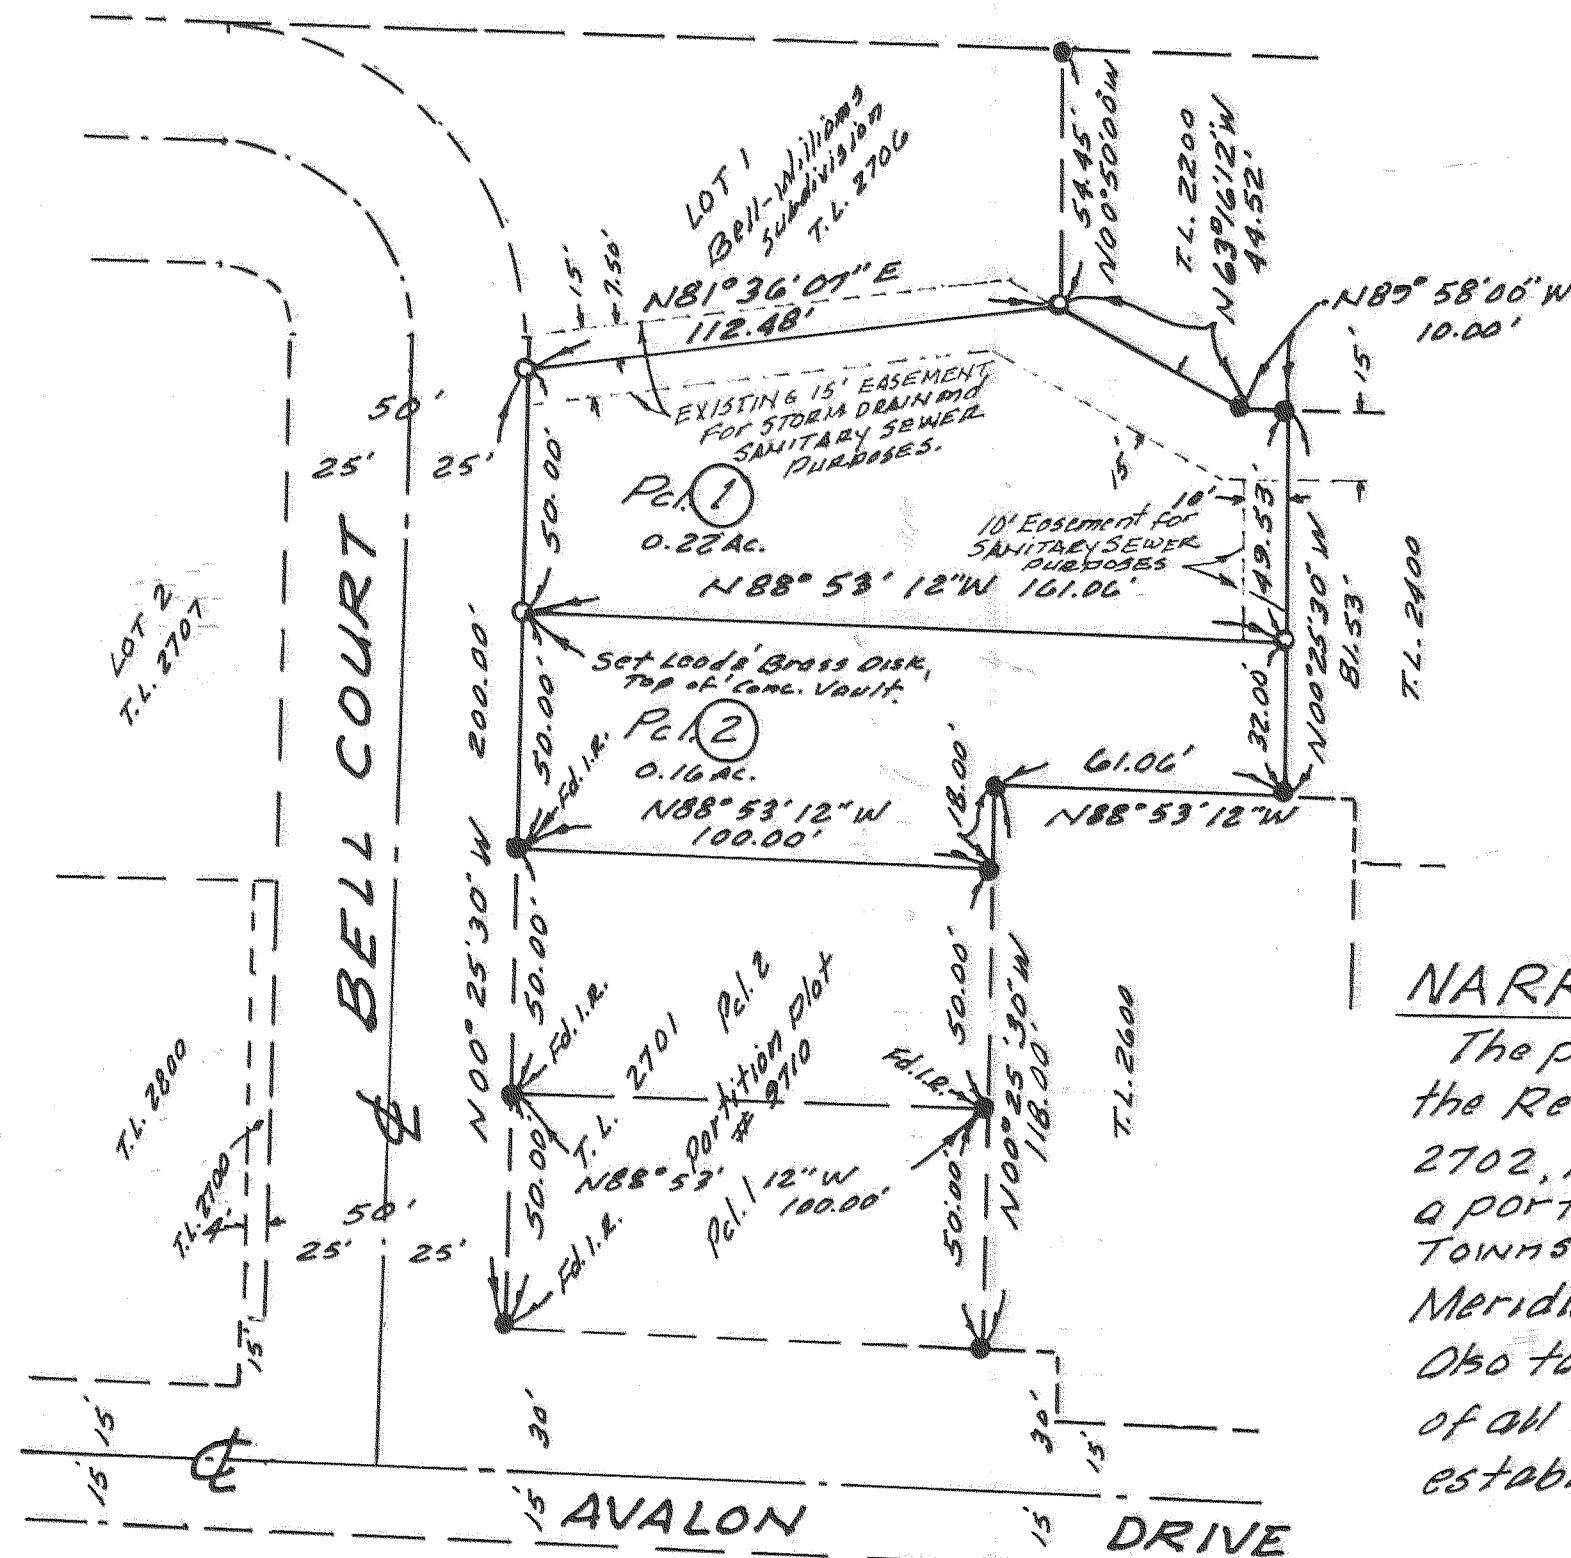 LOT 1
Bell-Williams
Subdivision
T.L. 2706
54.45'
N00°50'00"W
T.L. 2200
N63°16'12"W
44.52'
N89°58'00"W
10.00'
15'
7.50'
N81°36'07"E
112.48'
15'
50'
25' 25'
EXISTING 15' EASEMENT
For STORM DRAIN and
SANITARY SEWER
PURPOSES.
15'
50.00'
Pcl. 1
0.22 AC.
10'
10' Easement for
SANITARY SEWER
PURPOSES
49.53'
N88°53'12"W 161.06'
N00°25'30"W
81.53'
T.L. 2400
LOT 2
T.L. 2707
BELL COURT
200.00'
N00°25'30"W
Set Lead & Brass Disk,
Top of Conc. Vault.
50.00'
Pcl. 2
0.16 AC.
Fd. I.R.
32.00'
18.00'
61.06'
N88°53'12"W
N88°53'12"W
100.00'
50.00'
Fd. I.R.
T.L. 2701
Pcl. 2
Partition Plat
50.00'
N00°25'30"W
118.00'
T.L. 2600
Fd. I.R.
T.L. 2800
T.L. 2700
4'
50'
25' 25'
N88°53'12"W
100.00'
Pcl. 1
50.00'
50.00'
Fd. I.R.
15'
℄
℄
15'
15'
30'
15'
30'
15'
15'
AVALON DRIVE
NARR
The p
the Re
2702,
a port
Towns
Meridi
Also to
of all
estab